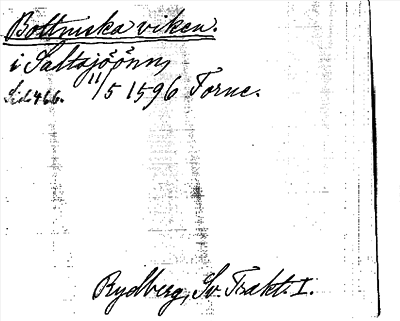 Bottniska viken.
i Saltsjöönn,
Sid. 466. 11/5 1596 Torne.
Rydberg, Sv. Trakt. I.